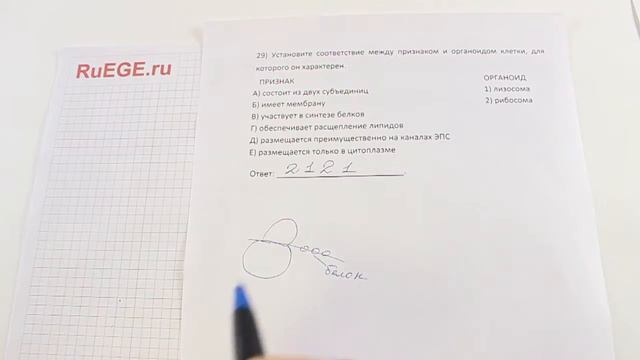 RuEGE.ru
29) Установите соответствие между признаком и органоидом клетки, для
которого он характерен.
ПРИЗНАК ОРГАНОИД
А) состоит из двух субъединиц 1) лизосома
Б) имеет мембрану 2) рибосома
В) участвует в синтезе белков
Г) обеспечивает расщепление липидов
Д) размещается преимущественно на каналах ЭПС
Е) размещается только в цитоплазме
Ответ: 2121
белок